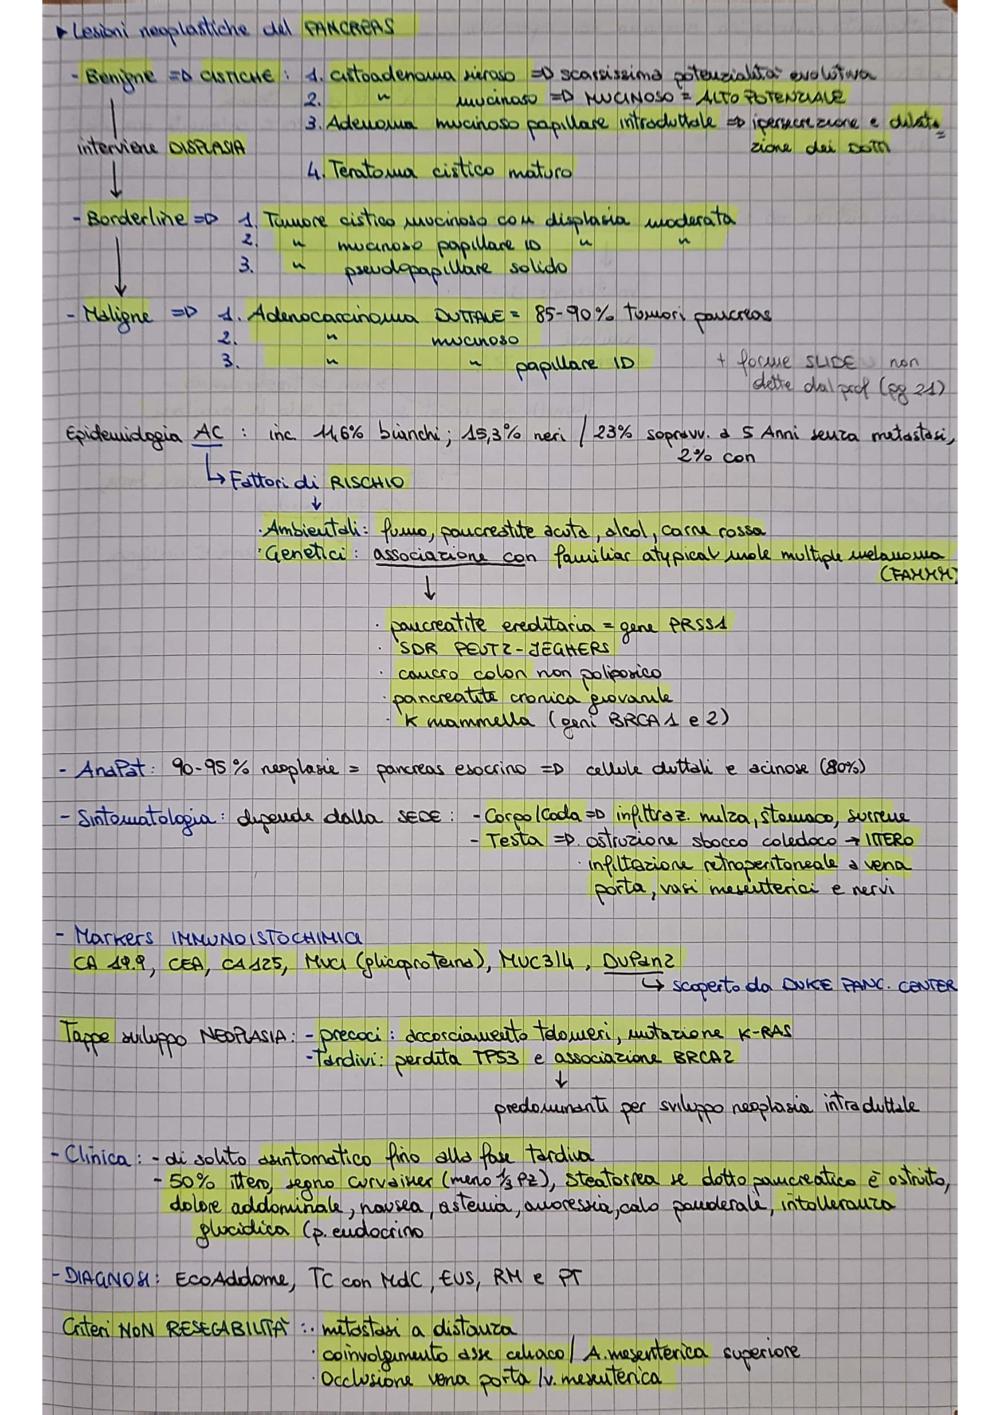 ▸ Lesioni neoplastiche del PANCREAS
- Benigne => CISTICHE : 1. cistoadenoma sieroso => scarsissima potenzialità evolutiva
2. " mucinoso => MUCINOSO = ALTO POTENZIALE
3. Adenoma mucinoso papillare introduttale => ipersecrezione e dilata=
interviene DISPLASIA zione dei DOTTI
4. Teratoma cistico maturo
- Borderline => 1. Tumore cistico mucinoso con displasia moderata
2. " mucinoso papillare ID " "
3. " pseudopapillare solido
- Maligne => 1. Adenocarcinoma DUTTALE = 85-90% tumori pancreas
2. " mucinoso
3. " " papillare ID + forme SLIDE non
dette dal prof (pg 21)
Epidemiologia AC : inc. 11,6% bianchi; 15,3% neri / 23% sopravv. a 5 Anni senza metastasi,
2% con
↳ Fattori di RISCHIO
↓
· Ambientali: fumo, pancreatite acuta, alcol, carne rossa
· Genetici: associazione con familiar atypical mole multiple melanoma
(FAMMM)
↓
· pancreatite ereditaria = gene PRSS1
· SDR PEUTZ-JEGHERS
· cancro colon non poliposico
· pancreatite cronica giovanile
· K mammella (geni BRCA 1 e 2)
- AnaPat: 90-95% neoplasie = pancreas esocrino => cellule duttali e acinose (80%)
- Sintomatologia: dipende dalla SEDE : - Corpo/Coda => infiltraz. milza, stomaco, surrene
- Testa => ostruzione sbocco coledoco → ITTERO
· infiltazione retroperitoneale a vena
porta, vasi mesenterici e nervi
- Markers IMMUNOISTOCHIMICI
CA 19.9, CEA, CA 125, MUC1 (glicoproteina), MUC3/4, DUPan2
↳ scoperto da DUKE PANC. CENTER
Tappe sviluppo NEOPLASIA: - precoci: accorciamento telomeri, mutazione K-RAS
- Tardivi: perdita TP53 e associazione BRCA2
↓
predominanti per sviluppo neoplasia intraduttale
- Clinica: - di solito asintomatico fino alla fase tardiva
- 50% ittero, segno curvaiser (meno ⅓ pz), steatorrea se dotto pancreatico è ostruito,
dolore addominale, nausea, astenia, anoressia, calo ponderale, intolleranza
glucidica (p. endocrino
- DIAGNOSI: EcoAddome, TC con MdC, EUS, RM e PT
Criteri NON RESECABILITÀ : · mitostasi a distanza
· coinvolgimento asse celiaco / A. mesenterica superiore
· Occlusione vena porta / v. mesenterica